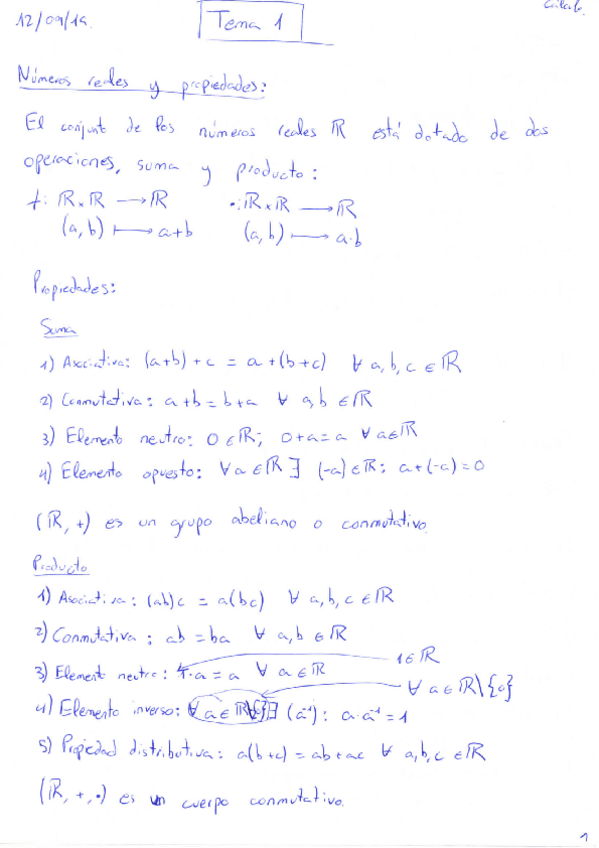 12/09/19.
Tema 1
Cálculo.
Números reales y propiedades:
El conjunto de los números reales ℝ está dotado de dos
operaciones, suma y producto:
+: ℝ×ℝ ⟶ ℝ •: ℝ×ℝ ⟶ ℝ
(a, b) ⟼ a+b (a, b) ⟼ a·b
Propiedades:
Suma
1) Asociativa: (a+b)+c = a+(b+c) ∀ a, b, c ∈ ℝ
2) Conmutativa: a+b = b+a ∀ a, b ∈ ℝ
3) Elemento neutro: 0 ∈ ℝ; 0+a = a ∀ a ∈ ℝ
4) Elemento opuesto: ∀ a ∈ ℝ ∃ (-a) ∈ ℝ: a+(-a) = 0
(ℝ, +) es un grupo abeliano o conmutativo.
Producto
1) Asociativa: (ab)c = a(bc) ∀ a, b, c ∈ ℝ
2) Conmutativa: ab = ba ∀ a, b ∈ ℝ
3) Elemento neutro: 1·a = a ∀ a ∈ ℝ 1 ∈ ℝ
∀ a ∈ ℝ\{0}
4) Elemento inverso: ∀ a ∈ ℝ\{0} ∃ (a⁻¹): a·a⁻¹ = 1
5) Propiedad distributiva: a(b+c) = ab+ac ∀ a, b, c ∈ ℝ
(ℝ, +, •) es un cuerpo conmutativo.
1